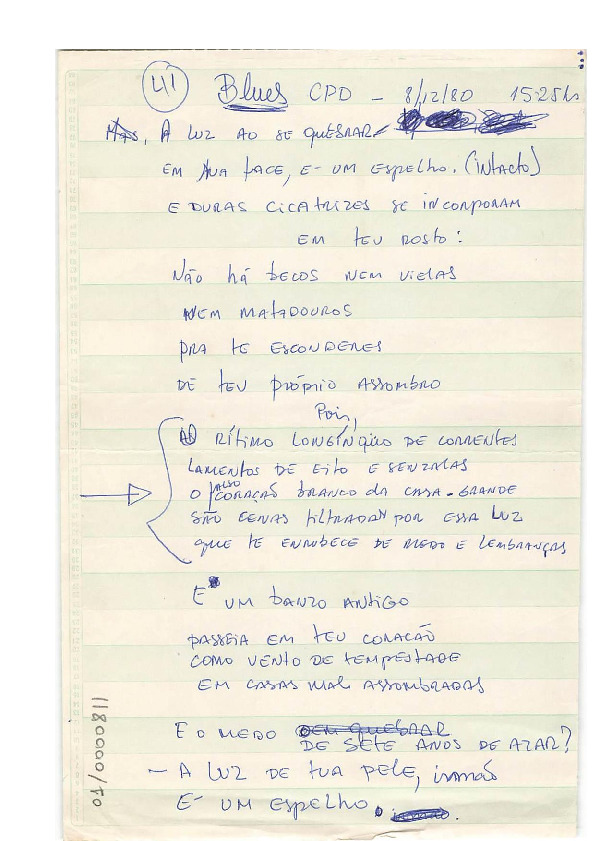 41 Blues CPD - 8/12/80 15:25hs
Mas, A LUZ AO SE QUEBRAR
EM TUA FACE, E- UM ESPELHO. (INTACTO)
E DURAS CICATRIZES SE INCORPORAM
EM TEU ROSTO:
NÃO há becos NEM vielas
NEM MATADOUROS
PRA TE ESCONDERES
DE TEU PRÓPRIO ASSOMBRO
Pois,
AO RÍTIMO LONGÍNQÜO DE CORRENTES
LAMENTOS DE EITO E SENZALAS
O FALSO CORAÇÃO BRANCO da CASA-GRANDE
SÃO CENAS FILTRADAS POR ESSA LUZ
QUE TE ENRUBECE DE MEDO E LEMBRANÇAS
E UM BANZO ANTIGO
PASSEIA EM TEU CORAÇÃO
COMO VENTO DE TEMPESTADE
EM CASAS MAL ASSOMBRADAS
E O MEDO EM QUEBRAR
DE SETE ANOS DE AZAR?
- A LUZ DE TUA PELE, irmão
E- UM ESPELHO.
1180000/70